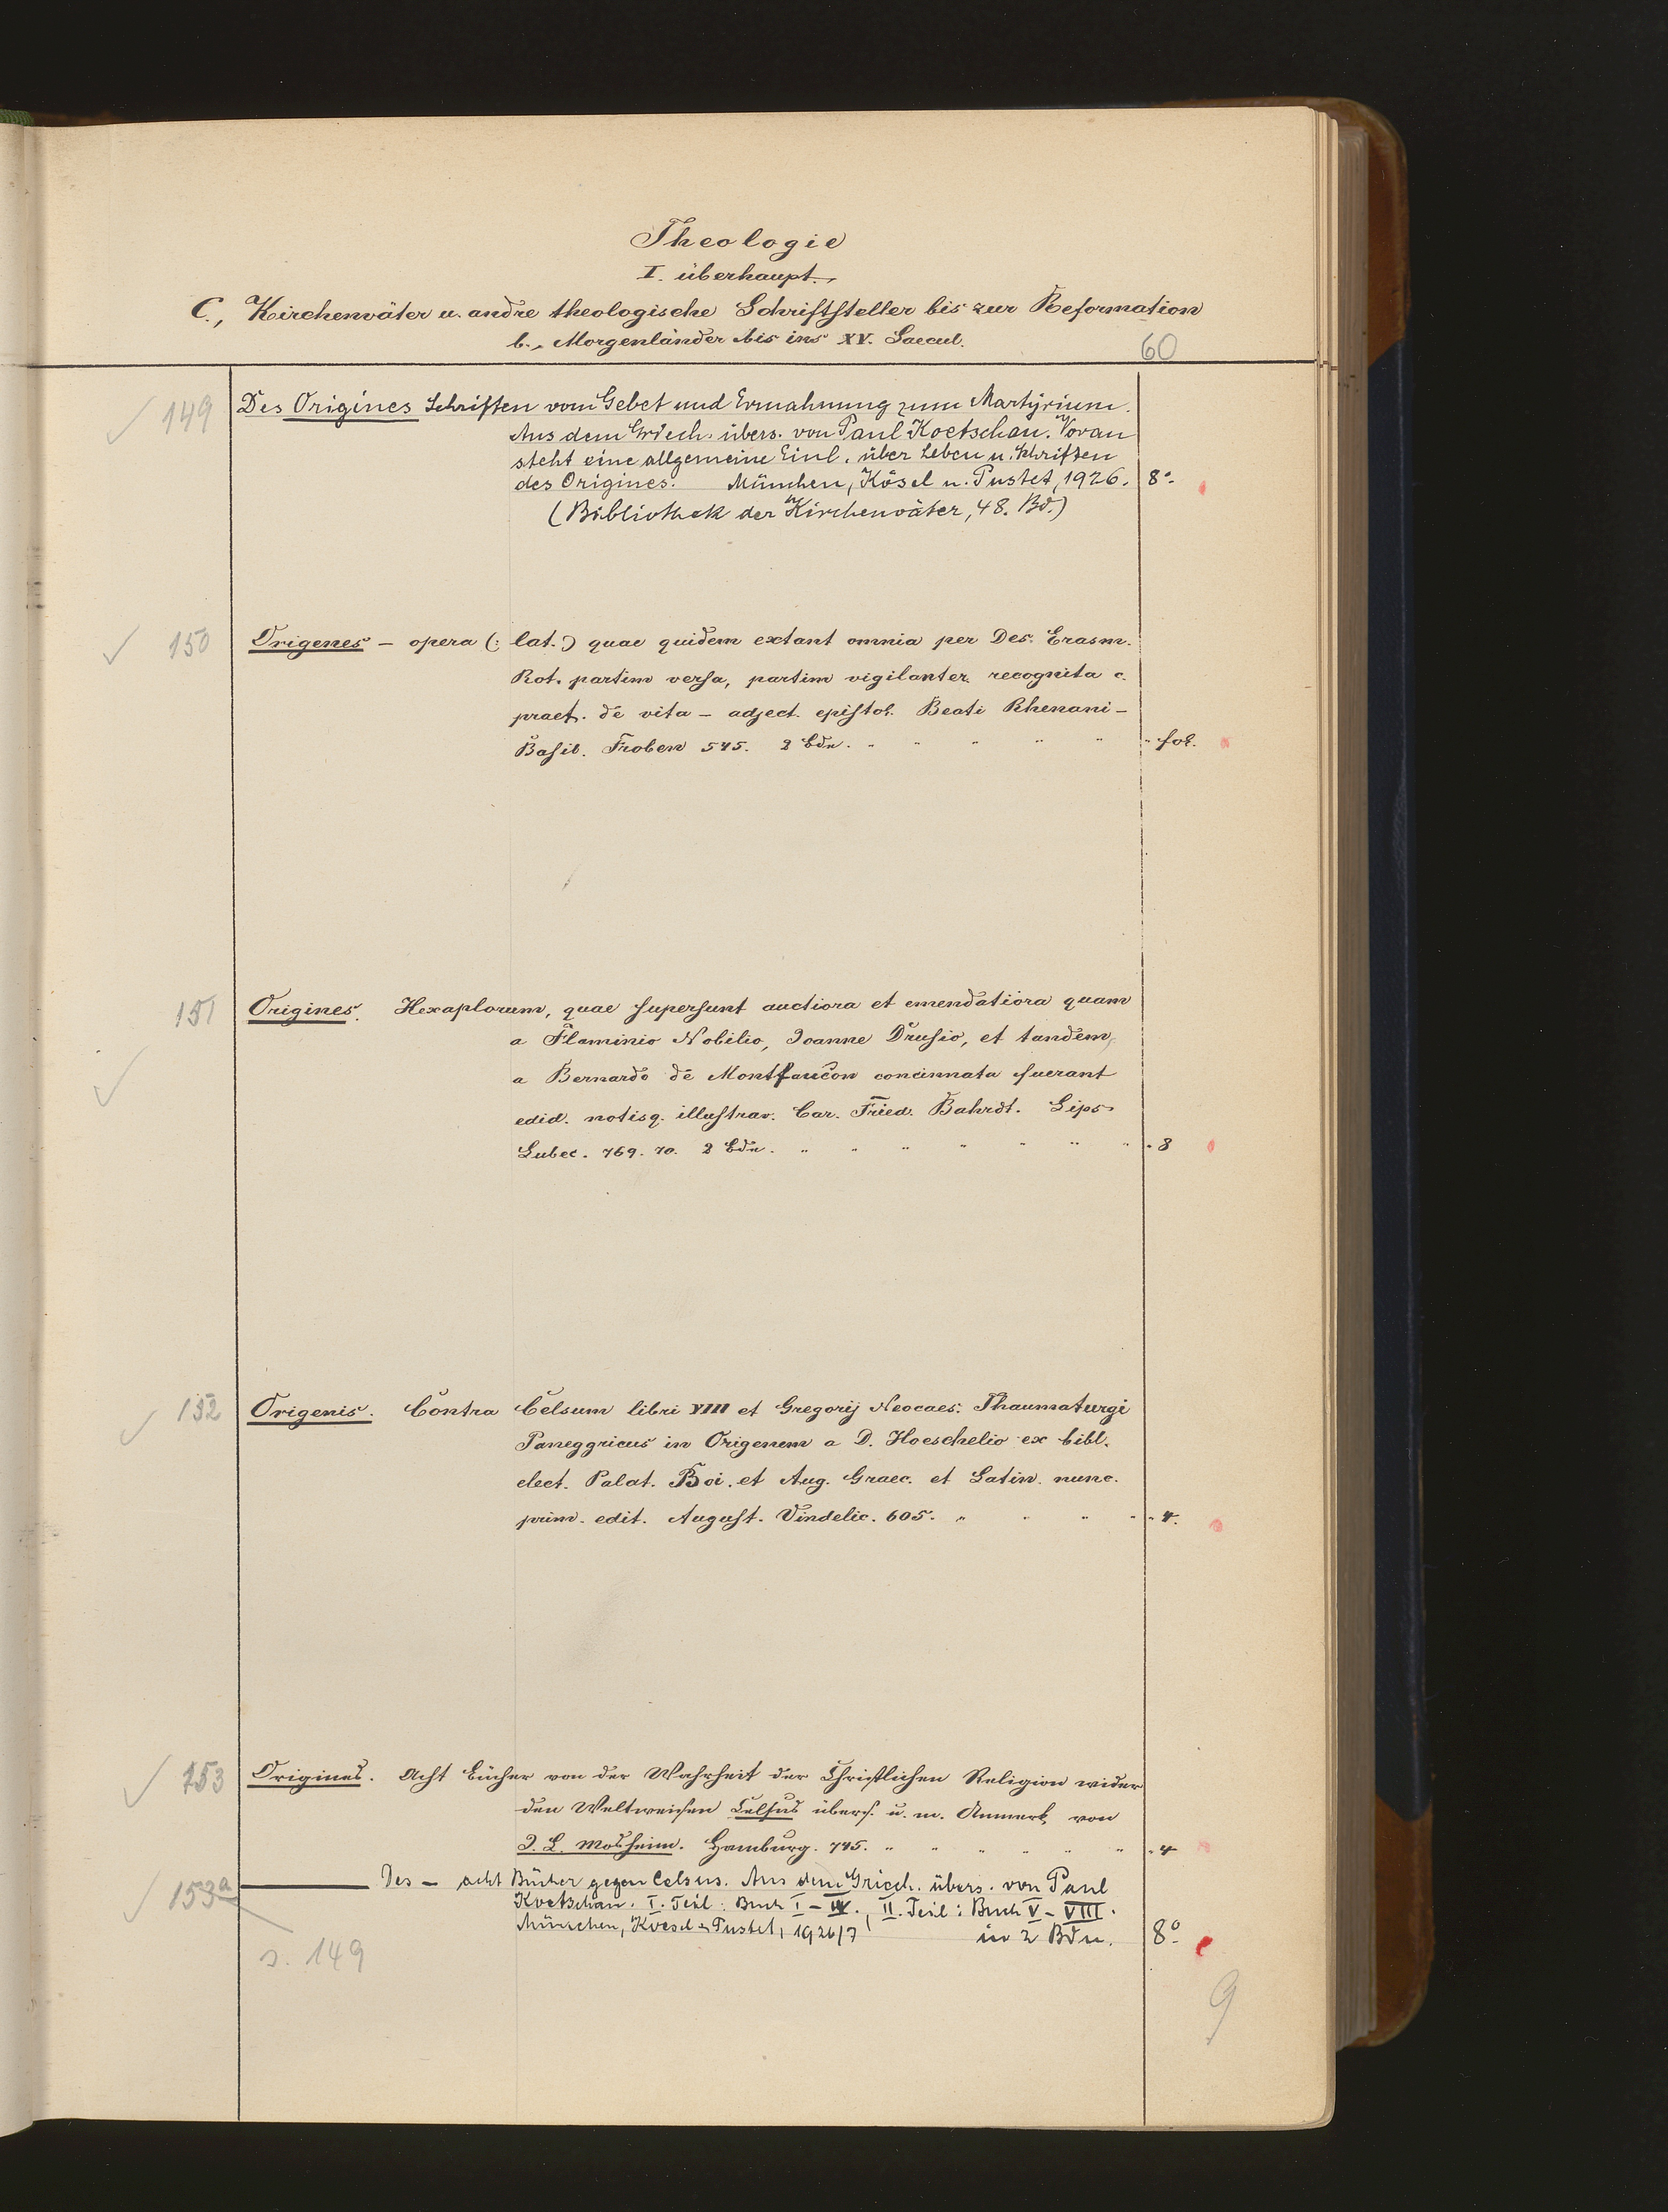 Theologie
I. überhaupt.,
C., Kirchenväter u. andre theologische Schriftsteller bis zur Reformation
b., Morgenländer bis ins XV. Saecul.
60
149 Des Origines Schriften vom Gebet und Ermahnung zum Martyrium.
Aus dem Griech. übers. von Paul Koetschau. Voran
steht eine allgemeine Einl. über Leben u. Schriften
des Origines. München, Kösel u. Pustet, 1926. 8°.
(Bibliothek der Kirchenväter, 48. Bd.)
150 Origenes – opera (: lat.:) quae quidem extant omnia per Des. Erasm.
Rot. partim versa, partim vigilanter recognita c.
praef. de vita – adject. epistol. Beati Rhenani –
Basil. Froben 545. 2 Bdn. " " " " " " fol.
151 Origines. Hexaplorum, quae supersunt auctiora et emendatiora quam
a Flaminio Nobilio, Joanne Drusio, et tandem,
a Bernardo de Montfaucon concinnata fuerant
edid. notisq. illustrav. Car. Fried. Bahrdt. Lips.
Lubec. 769. 70. 2 Bdn. " " " " " " " " 8
152 Origenis. Contra Celsum libri VIII et Gregorij Neocaes. Thaumaturgi
Paneggricus in Origenem a D. Hoeschelio ex bibl.
elect. Palat. Boi. et Aug. Graec. et Latin. nunc.
prim. edit. August. Vindelic. 605. " " " " " 4.
153 Origines. Acht Bücher von der Wahrheit der Christlichen Religion wider
den Weltweisen Celsus übers. u. m. Anmerk. von
J. L. Mosheim. Hamburg. 745. " " " " " " " 4
153a Des – acht Bücher gegen Celsus. Aus dem Griech. übers. von Paul
Koetschau. I. Teil: Buch I – IV., II. Teil: Buch V – VIII.
München, Koesel u. Pustet, 1926/7 in 2 Bdn. 8°.
s. 149
9